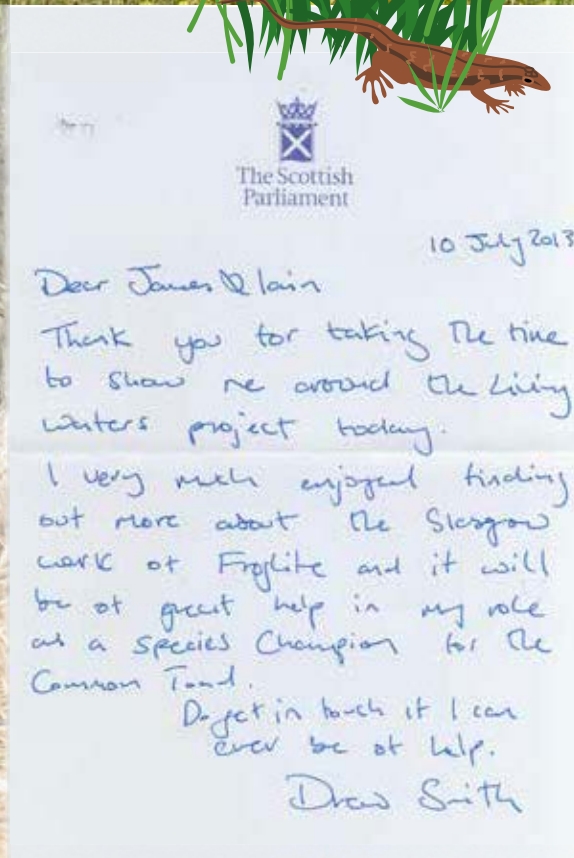 The Scottish
Parliament
10 July 2013
Dear James & Iain
Thank you for taking the time
to show me around the Living
Waters project today.
I very much enjoyed finding
out more about the Glasgow
work of Froglife and it will
be of great help in my role
as a Species Champion for the
Common Toad.
Do get in touch if I can
ever be of help.
Drew Smith